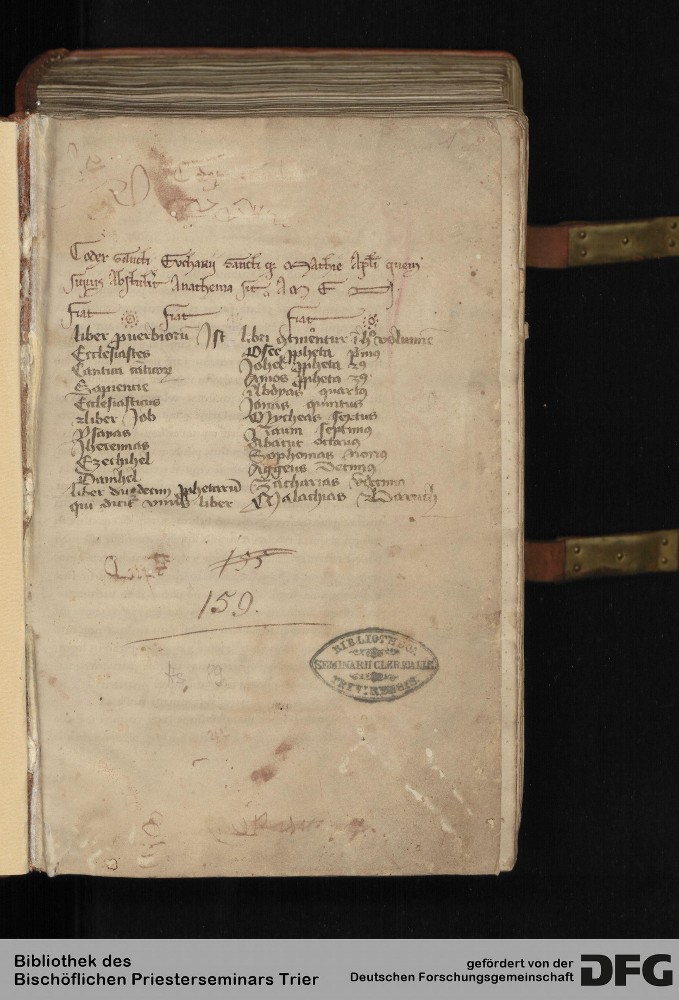 Codex sancti Eucharii sanctiq; Mathie Apli quem
siquis Abstulerit Anathema sit . A M E N
Fiat Fiat Fiat
liber puerbiorū Ist libri 9tinentur ī h° volumine
Ecclesiastes
Cantica cāticoꝝ
Sapiencie
Ecclesiasticus
liber Job
Ysayas
Jheremias
Ezechihel
Danihel
liber duodecim ꝓphetarū
qui dicit' unus liber
Osee ꝓpheta pimus
Johel ꝓpheta 29
Amos ꝓpheta 39
Abdyas quartus
Jonas quintus
Mycheas sextus
Naum septimus
Abacuc octauus
Sophonias nonus
Aggeus decimus
Zacharias
Malachias Baruch
155
159.
Hs. 89.
BIBLIOTHECA
SEMINARII CLERICALIS
TREVIRENSIS.
Bibliothek des
Bischöflichen Priesterseminars Trier
gefördert von der
Deutschen Forschungsgemeinschaft
DFG